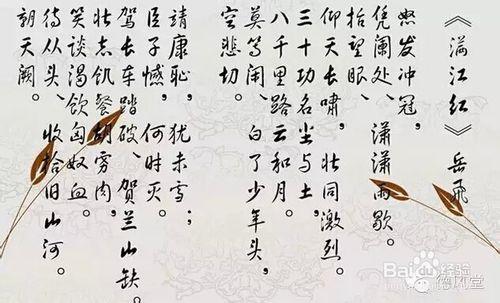 《满江红》岳飛
怒发冲冠，
凭阑处、潇潇雨歇。
抬望眼
仰天长啸，壮同激烈。
三十功名尘与土，
八千里路云和月。
莫等闲、白了少年头，
空悲切。
靖康耻，犹未雪；
臣子憾，何时灭。
驾长车踏破、贺兰山缺。
壮志饥餐胡虏肉，
笑谈渴饮匈奴血。
待从头、收拾旧山河。
朝天阙。
Baidu经验